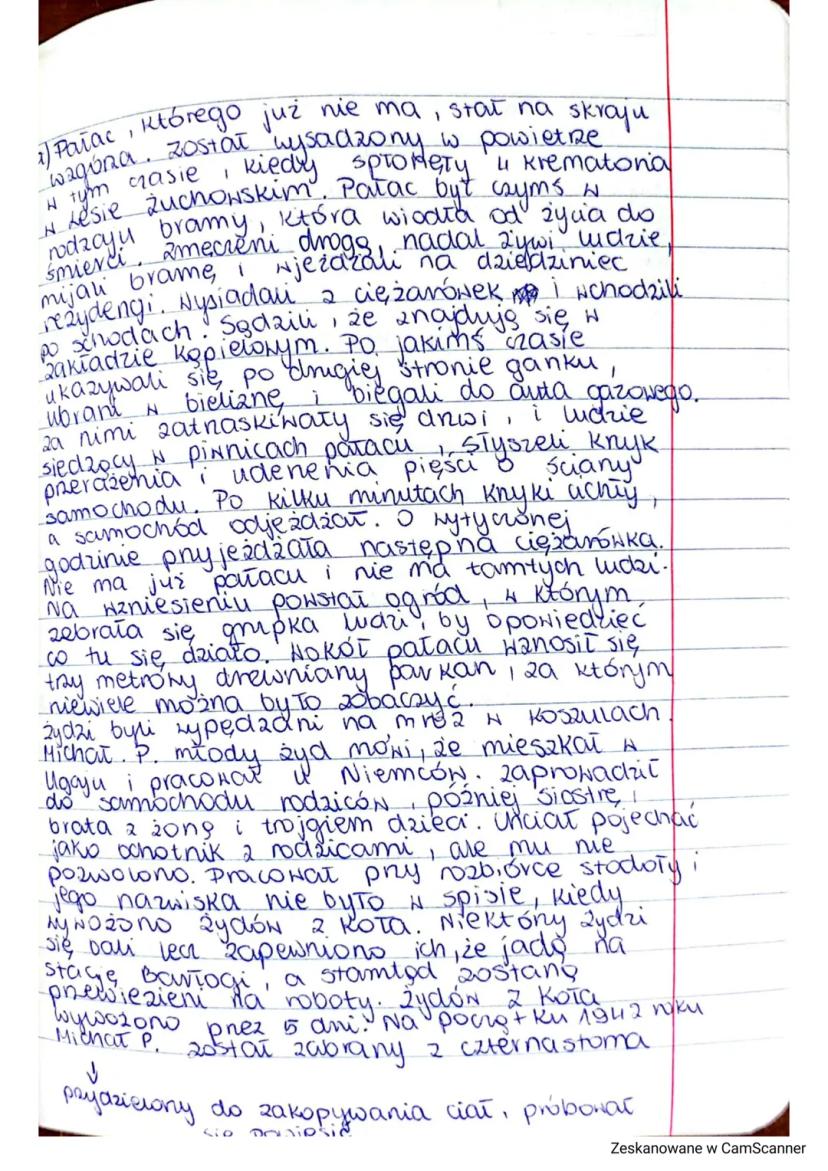 a) Pałac, którego już nie ma, stał na skraju
wzgórza. Został wysadzony w powietrze
w tym czasie, kiedy spłonęły 4 krematoria
w Lesie Żuchowskim. Pałac był czymś w
rodzaju bramy, która wiodła od życia do
śmierci. Zmęczeni drogą, nadal żywi ludzie,
mijali bramę i wjeżdżali na dziedziniec
rezydengi. Wysiadali z ciężarówek i wchodzili
po schodach. Sądzili, że znajdują się w
zakładzie kąpielowym. Po jakimś czasie
ukazywali się po drugiej stronie ganku,
ubrani w bieliznę i biegali do auta gazowego.
za nimi zatrzaskiwały się drzwi, i ludzie
siedzący w piwnicach pałacu, słyszeli krzyk
przerażenia i uderzenia pięści o ściany
samochodu. Po kilku minutach krzyki cichły,
a samochód odjeżdżał. O wytyczonej
godzinie przyjeżdżała następna ciężarówka.
Nie ma już pałacu i nie ma tamtych ludzi.
Na wzniesieniu powstał ogród, w którym
zebrała się grupka ludzi, by opowiedzieć
co tu się działo. Wokół pałacu wznosił się
trzy metrowy drewniany parkan, za którym
niewiele można było zobaczyć.
żydzi byli wypędzani na mróz w koszulach.
Michał. P. młody żyd mówi, że mieszkał w
Ugaju i pracował u Niemców. Zaprowadził
do samochodu rodziców, później siostrę,
brata z żoną i trojgiem dzieci. Chciał pojechać
jako ochotnik z rodzicami, ale mu nie
pozwolono. Pracował przy rozbiórce stodoły i
jego nazwiska nie było w spisie, kiedy
wywożono żydów z Koła. Niektórzy żydzi
się bali lecz zapewniono ich, że jadą na
stację Barłogi, a stamtąd zostaną
przewiezieni na roboty. Żydów z Koła
wywożono przez 5 dni. Na początku 1942 roku
Michał P. został zabrany z czternastoma
↓
przydzielony do zakopywania ciał, próbował
się powiesić
Zeskanowane w CamScanner